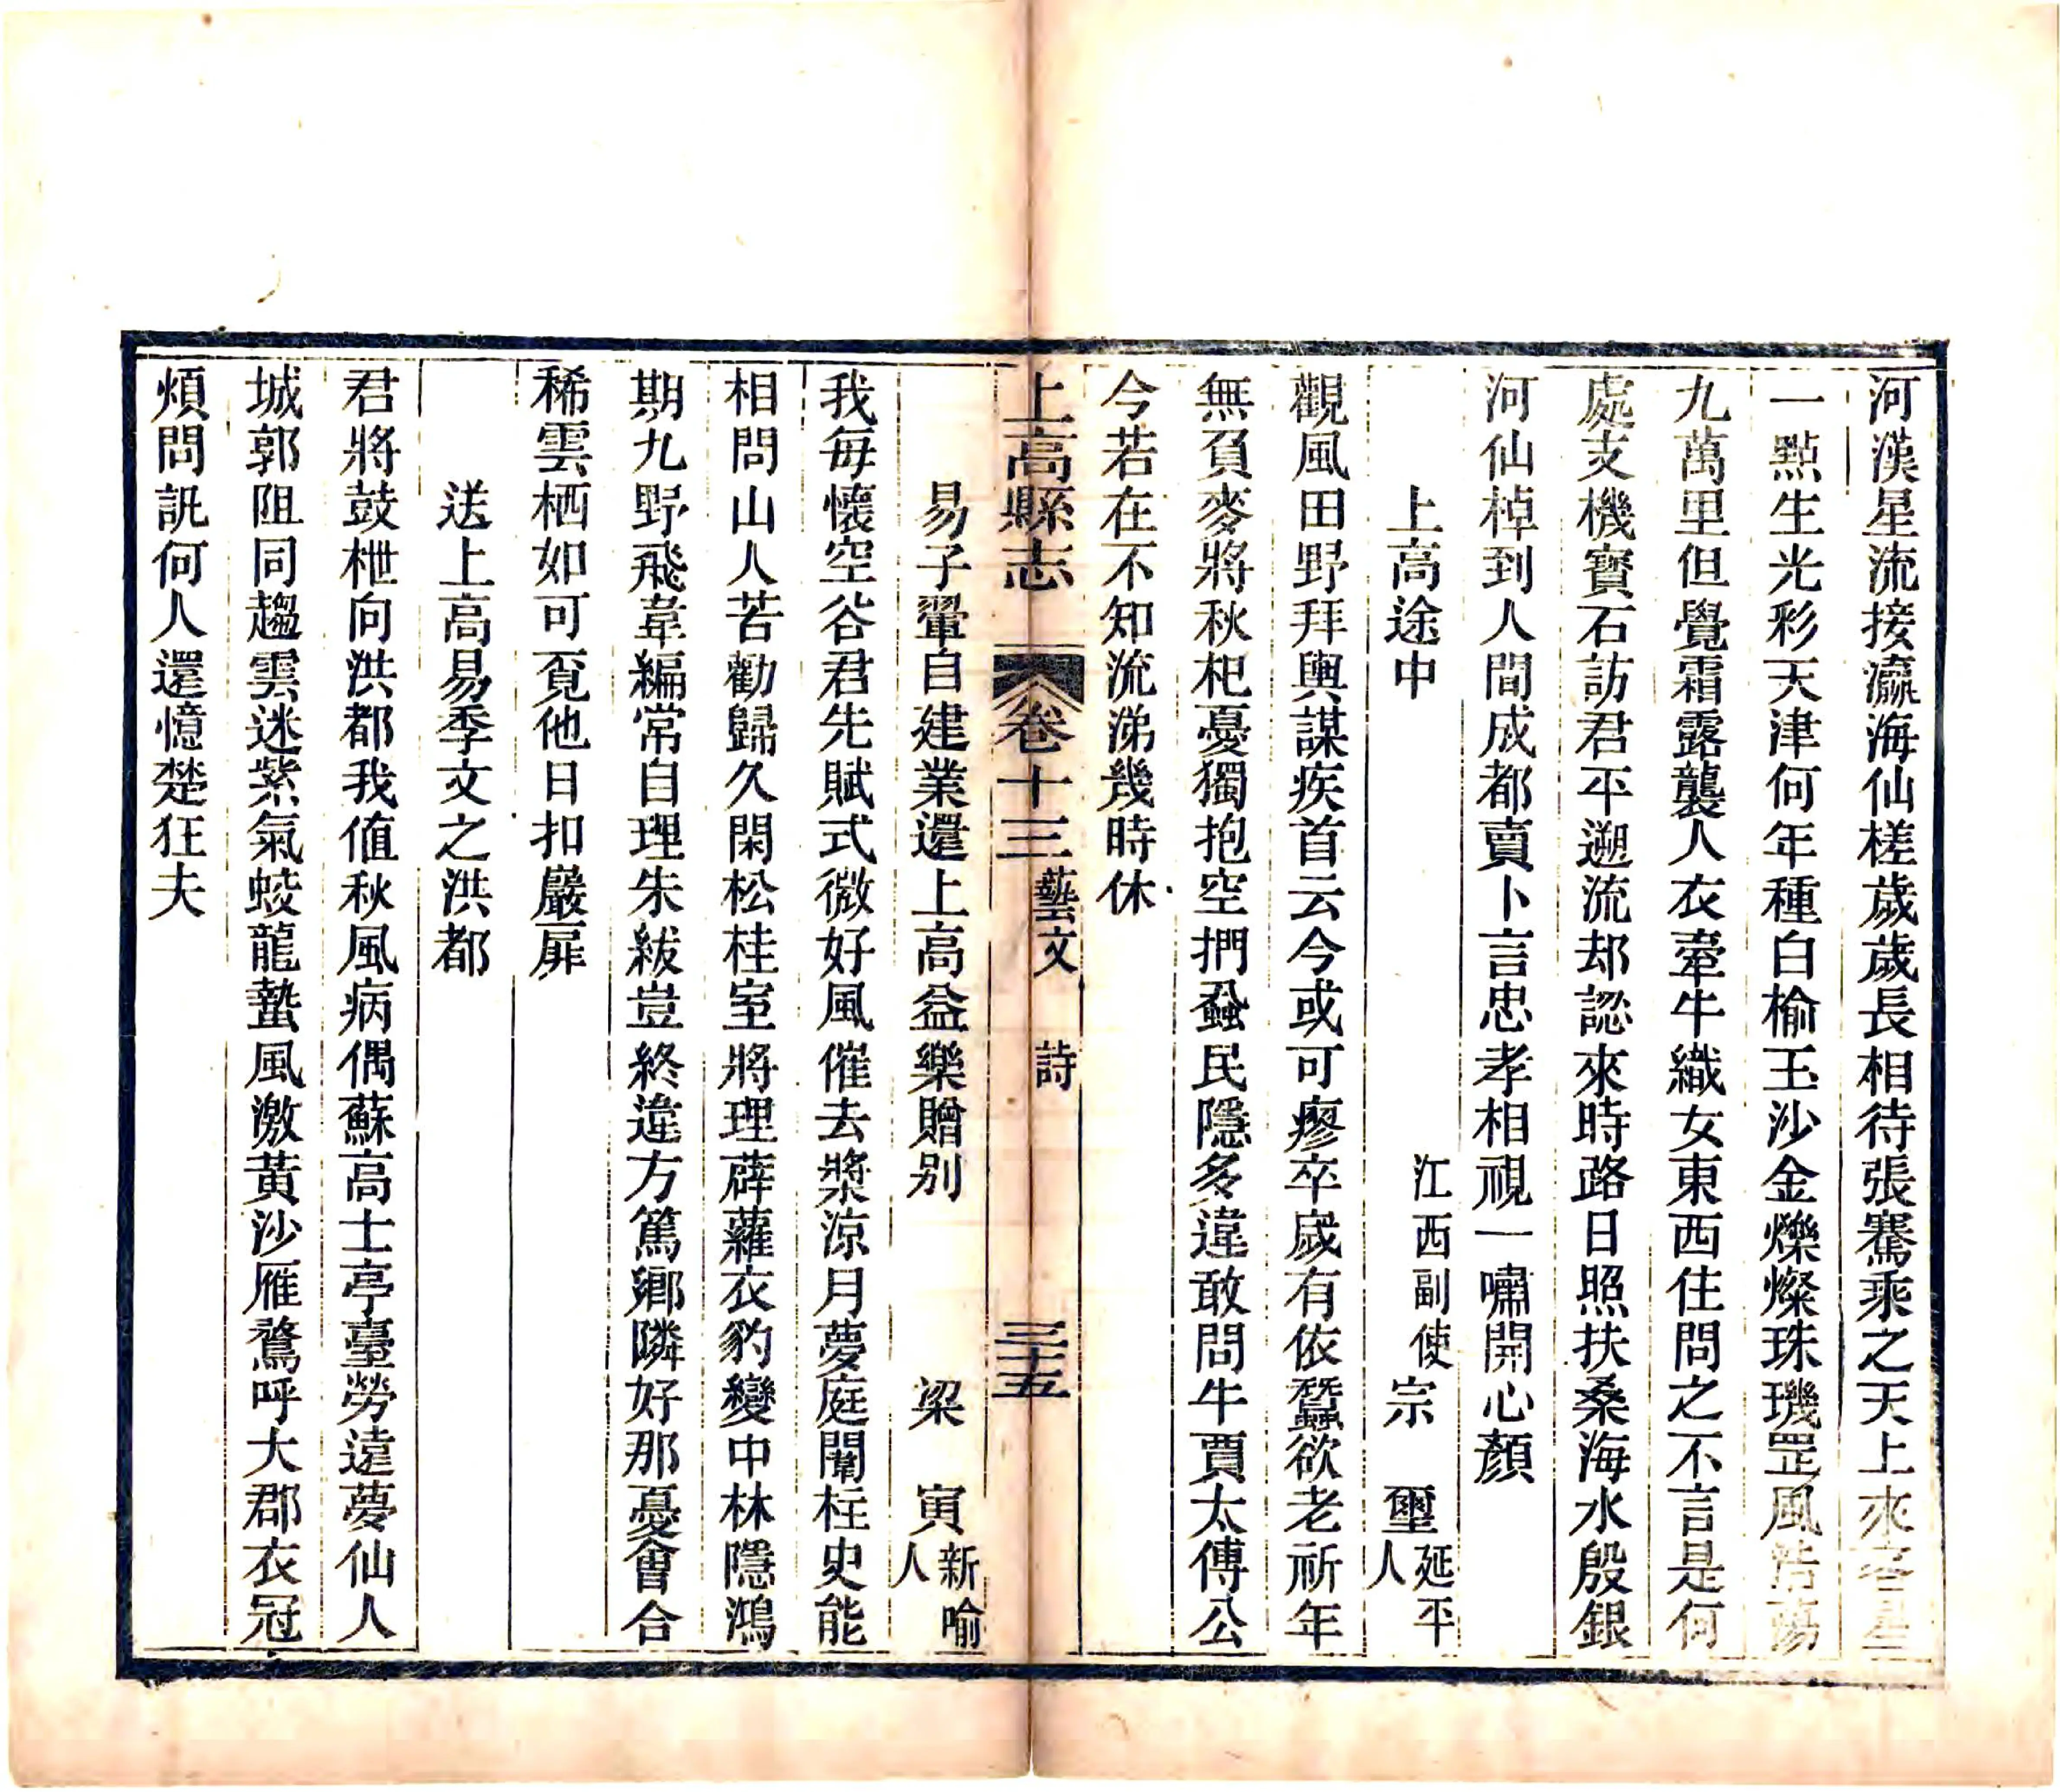 河漢星流接瀛海仙槎歲歲長相待張騫乘之天上來客星
一㸃生光彩天津何年種白榆玉沙金爍燦珠璣罡風浩蕩
九萬里但覺霜露襲人衣牽牛織女東西住問之不言是何
處支機寳石訪君平遡流却認來時路日照扶桑海水殷銀
河仙棹到人間成都賣卜言忠孝相視一嘯開心顏
上高途中 江西副使宗 璽延平人
觀風田野拜輿謀疾首云今或可瘳卒歲有依蠶欲老祈年
無負麥將秋杞憂獨抱空捫蝨民隱多違敢問牛賈太傅公
今若在不知流涕幾時休
上高縣志 卷十三 藝文 詩 三十五
易子翬自建業還上高益樂贈别 梁 寅新喻人
我每懷空谷君先賦式微好風催去槳涼月夢庭闈柱史能
相問山人苦勸歸久閑松桂室將理薜蘿衣豹變中林隱鴻
期九野飛韋編常自理朱紱豈終違方篤鄉隣好那憂會合
稀雲栖如可覔他日扣巖扉
送上高易季文之洪都
君將鼓枻向洪都我值秋風病偶蘇高士亭臺勞遠夢仙人
城郭阻同趨雲迷紫氣蛟龍蟄風激黃沙雁鶩呼大郡衣冠
煩問訊何人還憶楚狂夫